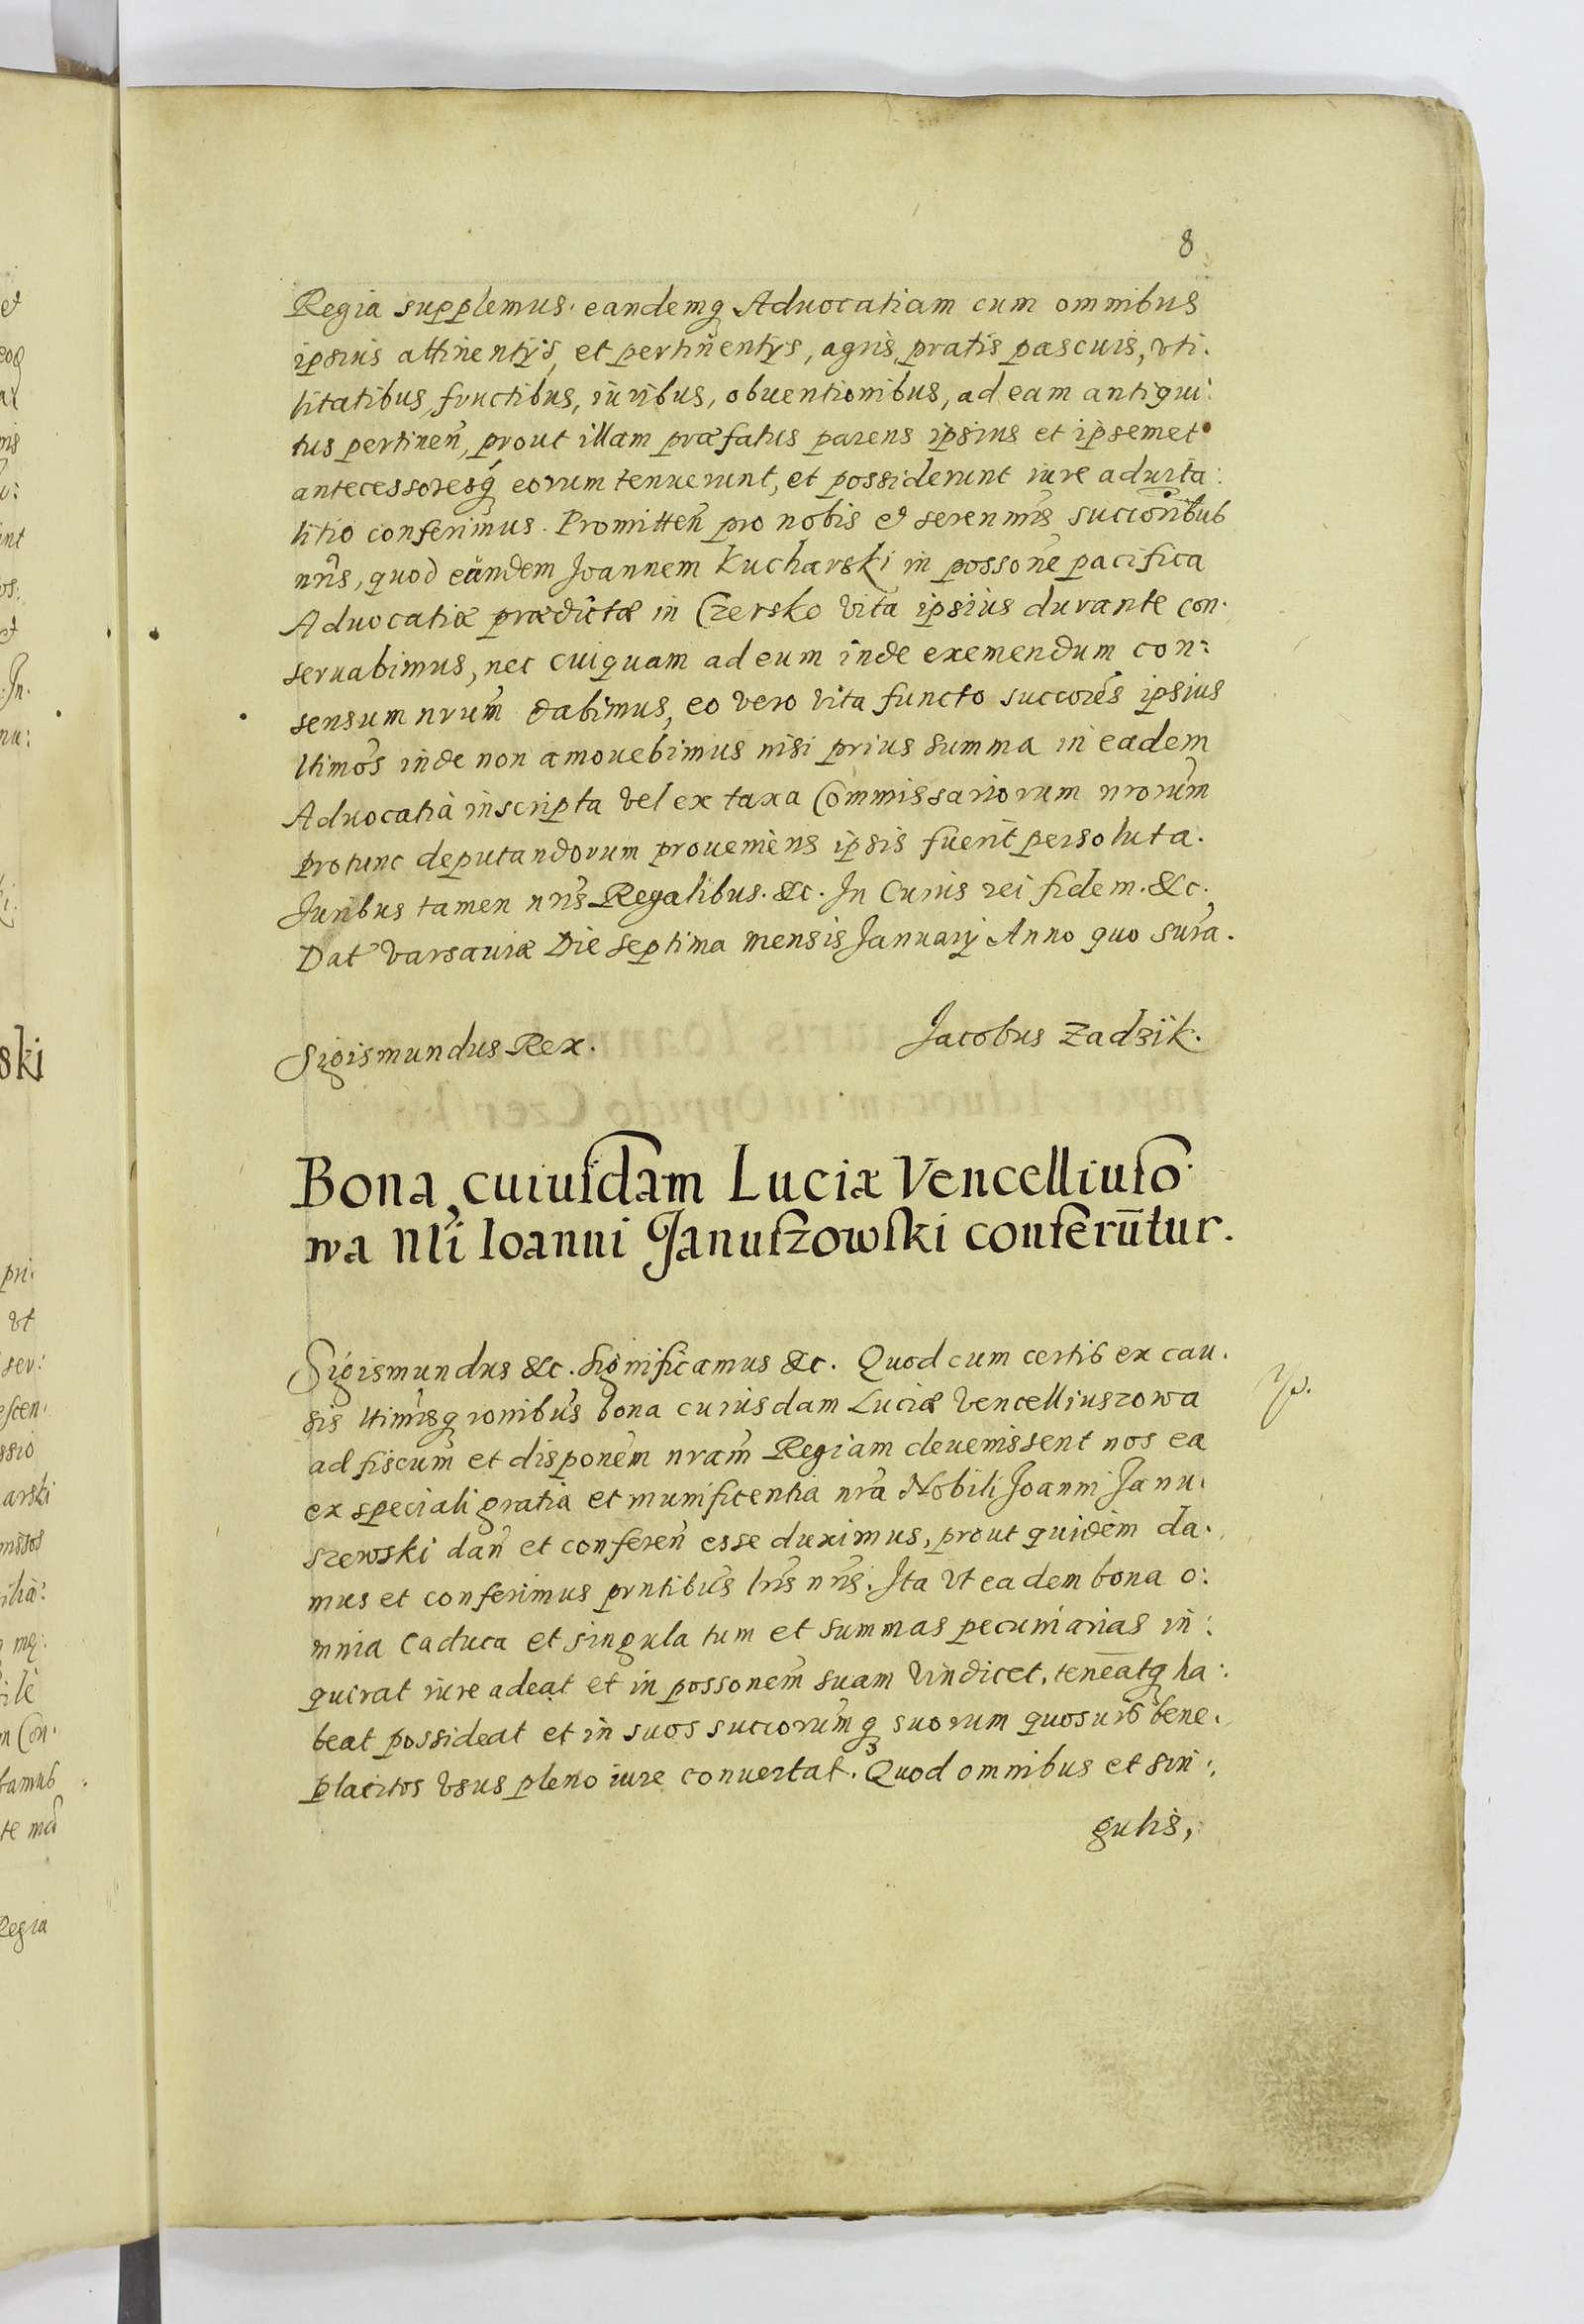 8
Regia supplemus. eandemq Aduocatiam cum omnibus
ipsius attinentijs, et pertinentijs, agris, pratis pascuis, vti.
litatibus fructibus, iuribus, obuentionibus, ad eam antiqui:
tus pertineñ, prout illam præfatus parens ipsius et ipsemet
antecessoresq́ eorum tenuerunt, et possiderunt iure aduita:
litio conferimus. Promitteñ pro nobis et serenmis succoribus
nr̃is, quod eundem Joannem Kucharski in possoñe pacifica
Aduocatiæ prædictæ in Czersko vita ipsius durante con.
seruabimus, nec cuiquam ad eum inde exemendum con:
sensum nrum̃ dabimus, eo vero vita functo succores̃ ipsius
ltimos̃ inde non amouebimus nisi prius summa in eadem
Aduocatia inscripta vel ex taxa Commissariorum nrorum̃
protunc deputandorum proueniens ipsis fuerit persoluta.
Juribus tamen nris̃ Regalibus. &c. In Cuius rei fidem. &c.
Dat̃ Varsauiæ Die septima mensis Januarij Anno quo supra.
Sigismundus Rex.
Jacobus Zadzik.
Bona cuiusdam Luciæ Vencelliuso.
wa Nli Ioanni Januszowski conferūtur.
Sigismundus &c. Significamus &c. Quod cum certis ex cau.
sis ltimisq̃ ronibus̃ bona cuiusdam Luciæ Vencelliuszowa
ad fiscum et disponem̃ nram̃ Regiam deuenissent nos ea
ex speciali gratia et munificentia nrã Nobili Joanni Janu.
szewski dañ et confereñ esse duximus, prout quidem da.
mus et conferimus prntibus̃ lris̃ nris̃. Ita vt eadem bona o:
mnia caduca et singula tum et summas pecuniarias in:
quirat iure adeat et in possonem̃ suam vindicet, teneatq ha:
beat possideat et in suos succorum̃q suorum quosuis bene.
placitos vsus pleno iure conuertat. Quod omnibus et sin:
gulis,